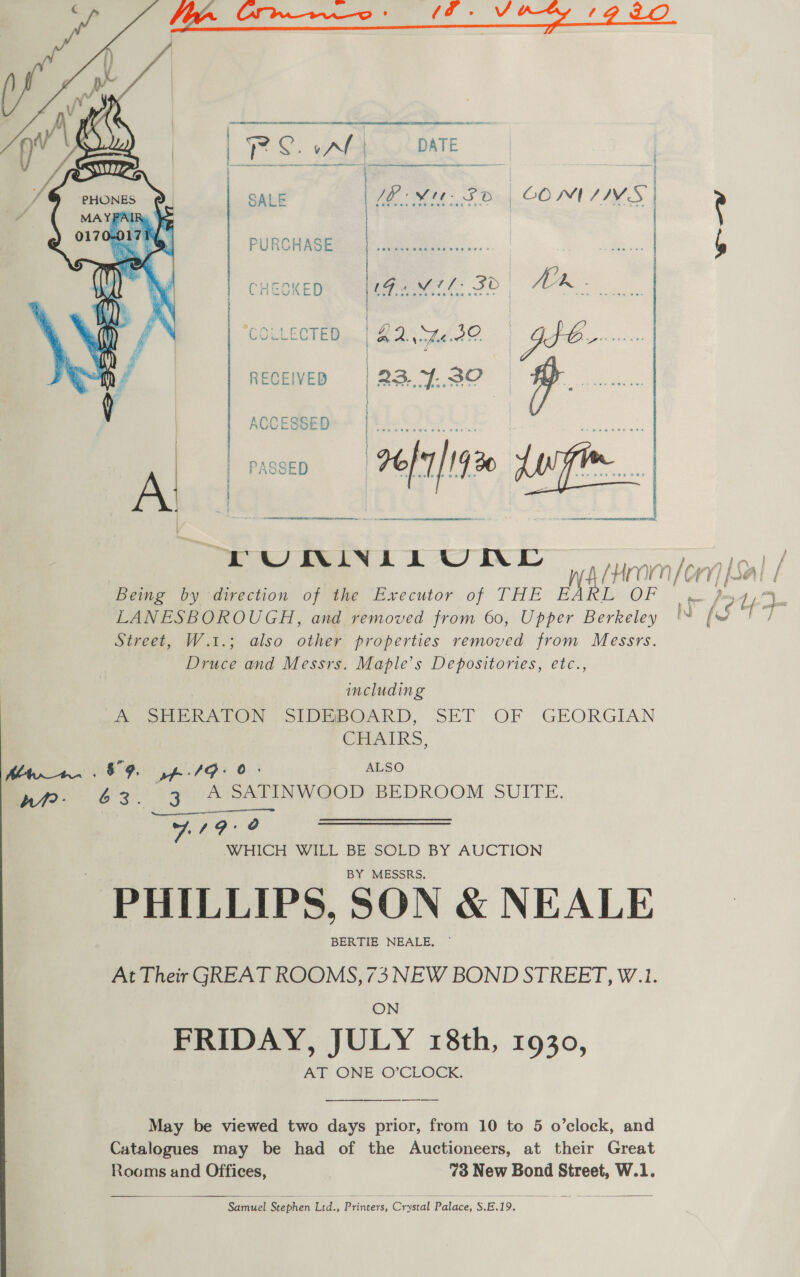 18. July 1930
PHONES
MAYFAIR
0170-0171
DATE
SALE 18. VII. 30 COMINS
PURCHASE
CHECKED 19. VII. 30
COLLECTED 22. 7. 30
RECEIVED 23. 7. 30
ACCESSED
PASSED 26/7/1930
A
FURNITURE
Being by direction of the Executor of THE EARL OF
LANESBOROUGH, and removed from 60, Upper Berkeley
Street, W.1.; also other properties removed from Messrs.
Druce and Messrs. Maple's Depositories, etc.,
including
A SHERATON SIDEBOARD, SET OF GEORGIAN
CHAIRS,
ALSO
A SATINWOOD BEDROOM SUITE.
63. 3
7. 19. 0
WHICH WILL BE SOLD BY AUCTION
BY MESSRS.
PHILLIPS, SON & NEALE
BERTIE NEALE.
At Their GREAT ROOMS, 73 NEW BOND STREET, W.1.
ON
FRIDAY, JULY 18th, 1930,
AT ONE O'CLOCK.
May be viewed two days prior, from 10 to 5 o'clock, and
Catalogues may be had of the Auctioneers, at their Great
Rooms and Offices, 73 New Bond Street, W.1.
Samuel Stephen Ltd., Printers, Crystal Palace, S.E.19.